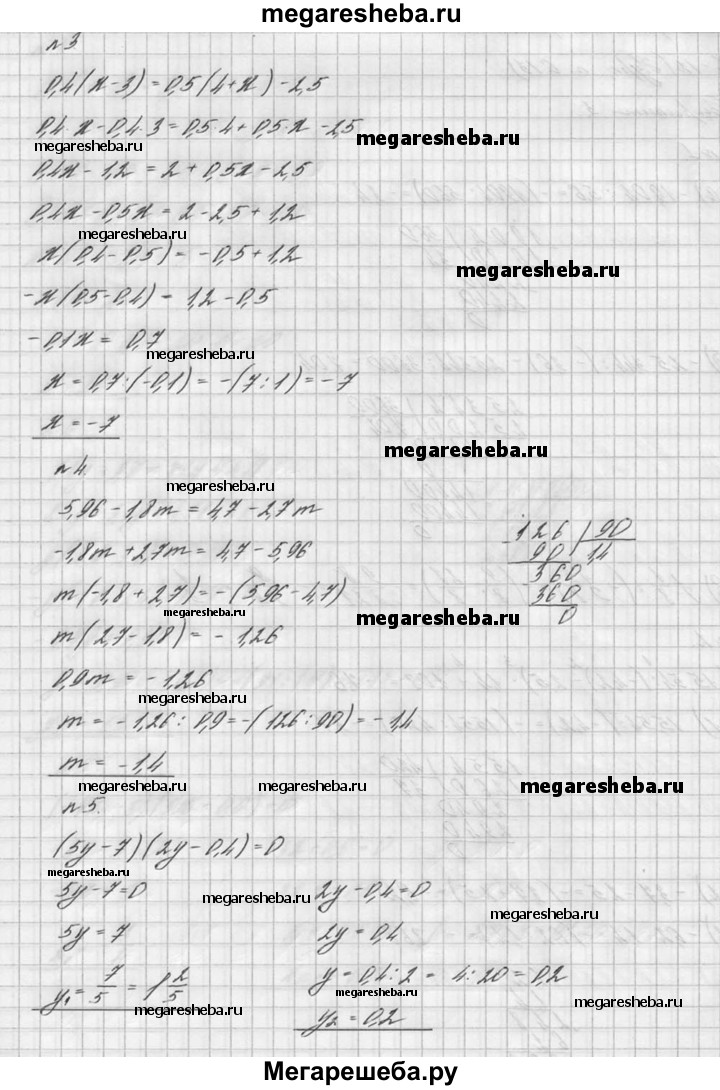 megaresheba.ru
n 3.
0,4(x-3) = 0,5(4+x) -2,5
0,4·x-0,4·3=0,5·4+0,5·x -2,5
megaresheba.ru
megaresheba.ru
0,4x-1,2 = 2+0,5x-2,5
0,4x-0,5x=2-2,5+1,2
megaresheba.ru
x(0,4-0,5) = -0,5+1,2
megaresheba.ru
-x(0,5-0,4) = 1,2-0,5
-0,1x = 0,7
megaresheba.ru
x = 0,7:(-0,1) = -(7:1) = -7
x = -7
megaresheba.ru
n 4.
megaresheba.ru
5,96 - 1,8m = 4,7 - 2,7m
-1,8m + 2,7m = 4,7 - 5,96
m(-1,8 + 2,7) = -(5,96 - 4,7)
megaresheba.ru
megaresheba.ru
m(2,7-1,8) = - 1,26
0,9m = -1,26
megaresheba.ru
m = - 1,26 : 0,9 = -(126:90) = -1,4
m = -1,4
126 | 90
90 1,4
360
360
0
megaresheba.ru
megaresheba.ru
megaresheba.ru
n 5.
(5y-7)(2y-0,4)=0
megaresheba.ru
5y-7=0 2y-0,4=0
megaresheba.ru
megaresheba.ru
5y = 7 2y = 0,4
y₁ = 7/5 = 1 2/5 y = 0,4:2 = 4:20 = 0,2
megaresheba.ru
megaresheba.ru
megaresheba.ru
y₂ = 0,2
Мегарешеба.ру